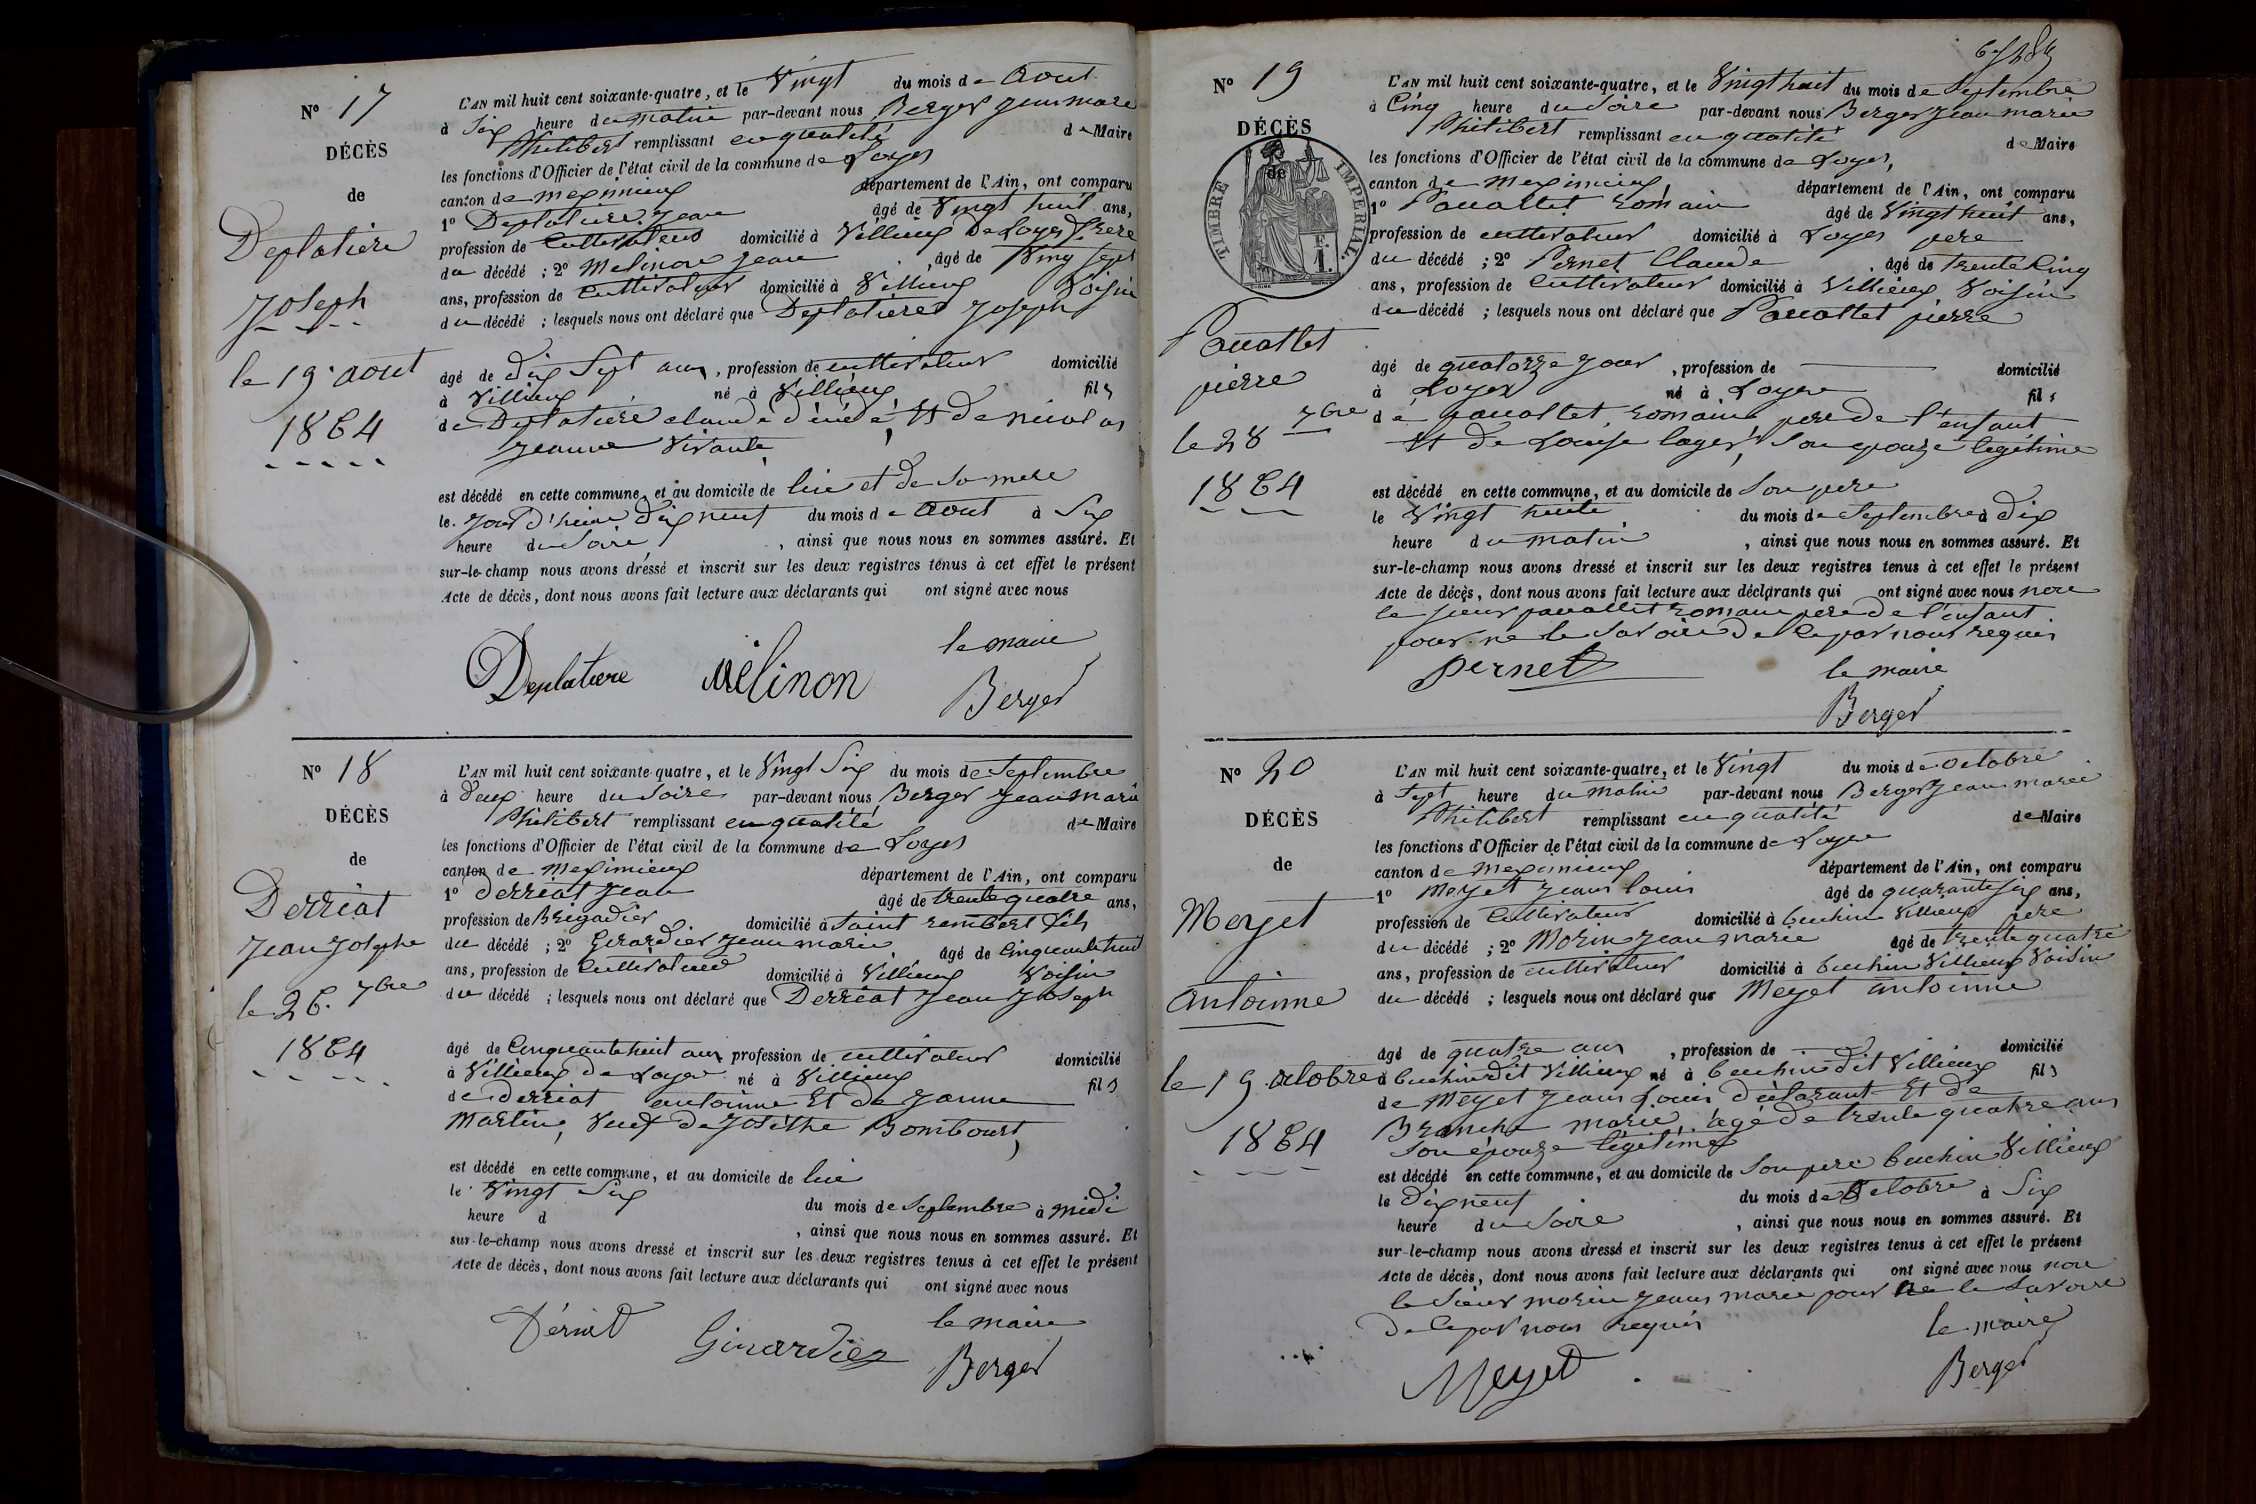 N° 17
DÉCÈS
de
Deplatiere
Joseph
le 19 aout
1864
L'AN mil huit cent soixante-quatre, et le Vingt du mois de Aout
à Six heure du matin par-devant nous Berger Jean marie
Philibert remplissant en qualité de Maire
les fonctions d'Officier de l'état civil de la commune de Loyes
canton de meximieux département de l'Ain, ont comparu
1° Deplatiere Jean âgé de Vingt huit ans,
profession de Cultivateur domicilié à Villieux de Loyes frere
du décédé ; 2° Melinon Jean , âgé de Ving Sept
ans, profession de Cultivateur domicilié à Villieux Voisin
du décédé ; lesquels nous ont déclaré que Deplatiere Joseph
âgé de dix Sept ans, profession de cultivateur domicilié
à Villieux né à Villieux fils
de Deplatiere claude décédé, Et de nicolas
Jeanne Vivante
est décédé en cette commune, et au domicile de lui et de Sa mere
le Jour d'hier dix neuf du mois de Aout à Six
heure du Soire , ainsi que nous nous en sommes assuré. Et
sur-le-champ nous avons dressé et inscrit sur les deux registres tenus à cet effet le présent
Acte de décès, dont nous avons fait lecture aux déclarants qui ont signé avec nous
le maire
Deplatiere Mélinon Berger
N° 18
DÉCÈS
de
Derriat
Jean Josephe
le 26 7bre
1864
L'AN mil huit cent soixante-quatre, et le Vingt Six du mois de Septembre
à deux heure du Soire par-devant nous Berger Jean marie
Philibert remplissant en qualité de Maire
les fonctions d'Officier de l'état civil de la commune de Loyes
canton de Meximieux département de l'Ain, ont comparu
1° derriat Jean âgé de trente quatre ans,
profession de Brigadier domicilié à Saint rembert fils
du décédé ; 2° Girardier Jean marie âgé de Cinquante huit
ans, profession de Cultivateur domicilié à Villieux Voisin
du décédé ; lesquels nous ont déclaré que Derriat Jean Joseph
âgé de Cinquante huit ans profession de cultivateur domicilié
à Villieux de Loyes né à Villieux fils
de derriat antoinne Et de Janne
Martin, Veuf de Joséthe Bombourt,
est décédé en cette commune, et au domicile de lui
le Vingt Six du mois de Septembre à midi
heure d , ainsi que nous nous en sommes assuré. Et
sur-le-champ nous avons dressé et inscrit sur les deux registres tenus à cet effet le présent
Acte de décès, dont nous avons fait lecture aux déclarants qui ont signé avec nous
le maire
Girardier Berger
N° 19
DÉCÈS
de
TIMBRE IMPERIAL
1F.
Pauattet
pierre
le 28 7bre
1864
L'AN mil huit cent soixante-quatre, et le Vingt huit du mois de Septembre
à Cinq heure du Soire par-devant nous Berger Jean marie
Philibert remplissant en qualité de Maire
les fonctions d'Officier de l'état civil de la commune de Loyes,
canton de Meximieux département de l'Ain, ont comparu
1° Pauattet romain âgé de Vingt huit ans,
profession de cultivateur domicilié à Loyes pere
du décédé ; 2° Pernet Claude âgé de trente Cinq
ans, profession de Cultivateur domicilié à Villieux Voisin
du décédé ; lesquels nous ont déclaré que Pauattet pierre
âgé de quatorze Jour , profession de domicilié
à Loyes né à Loyes fils
de pauattet romain pere de l'enfant
Et de Louise lager, Son epouze legitime
est décédé en cette commune, et au domicile de Son pere
le Vingt huite du mois de Septembre à dix
heure du matin , ainsi que nous nous en sommes assuré. Et
sur-le-champ nous avons dressé et inscrit sur les deux registres tenus à cet effet le présent
Acte de décès, dont nous avons fait lecture aux déclarants qui ont signé avec nous non
le sieur pauattet romain pere de l'enfant
pour ne le Savoire de le par nous requis
pernet le maire
Berger
N° 20
DÉCÈS
de
Meyet
antoinne
le 19 octobre
1864
L'AN mil huit cent soixante-quatre, et le Vingt du mois de octobre
à Sept heure du matin par-devant nous Berger Jean marie
Philibert remplissant en qualité de Maire
les fonctions d'Officier de l'état civil de la commune de Loyes
canton de Meximieux département de l'Ain, ont comparu
1° Meyet Jean louis âgé de quarante Six ans,
profession de Cultivateur domicilié à buchin Villieux pere
du décédé ; 2° Morin Jean marie âgé de trente quatre
ans, profession de cultivateur domicilié à buchin Villieux Voisin
du décédé ; lesquels nous ont déclaré que Meyet antoinne
âgé de quatre ans , profession de domicilié
à buchin dit Villieux né à buchin dit Villieux fils
de Meyet Jean Louis déclarant Et de
Branche marie agé de trente quatre ans
Son épouze légitime
est décédé en cette commune, et au domicile de Son pere buchin Villieux
le Dix neuf du mois de Octobre à Six
heure du Soire , ainsi que nous nous en sommes assuré. Et
sur-le-champ nous avons dressé et inscrit sur les deux registres tenus à cet effet le présent
Acte de décès, dont nous avons fait lecture aux déclarants qui ont signé avec nous non
le Sieur morin Jean marie pour ne le Savoire
de le par nous requis le maire
Meyet Berger